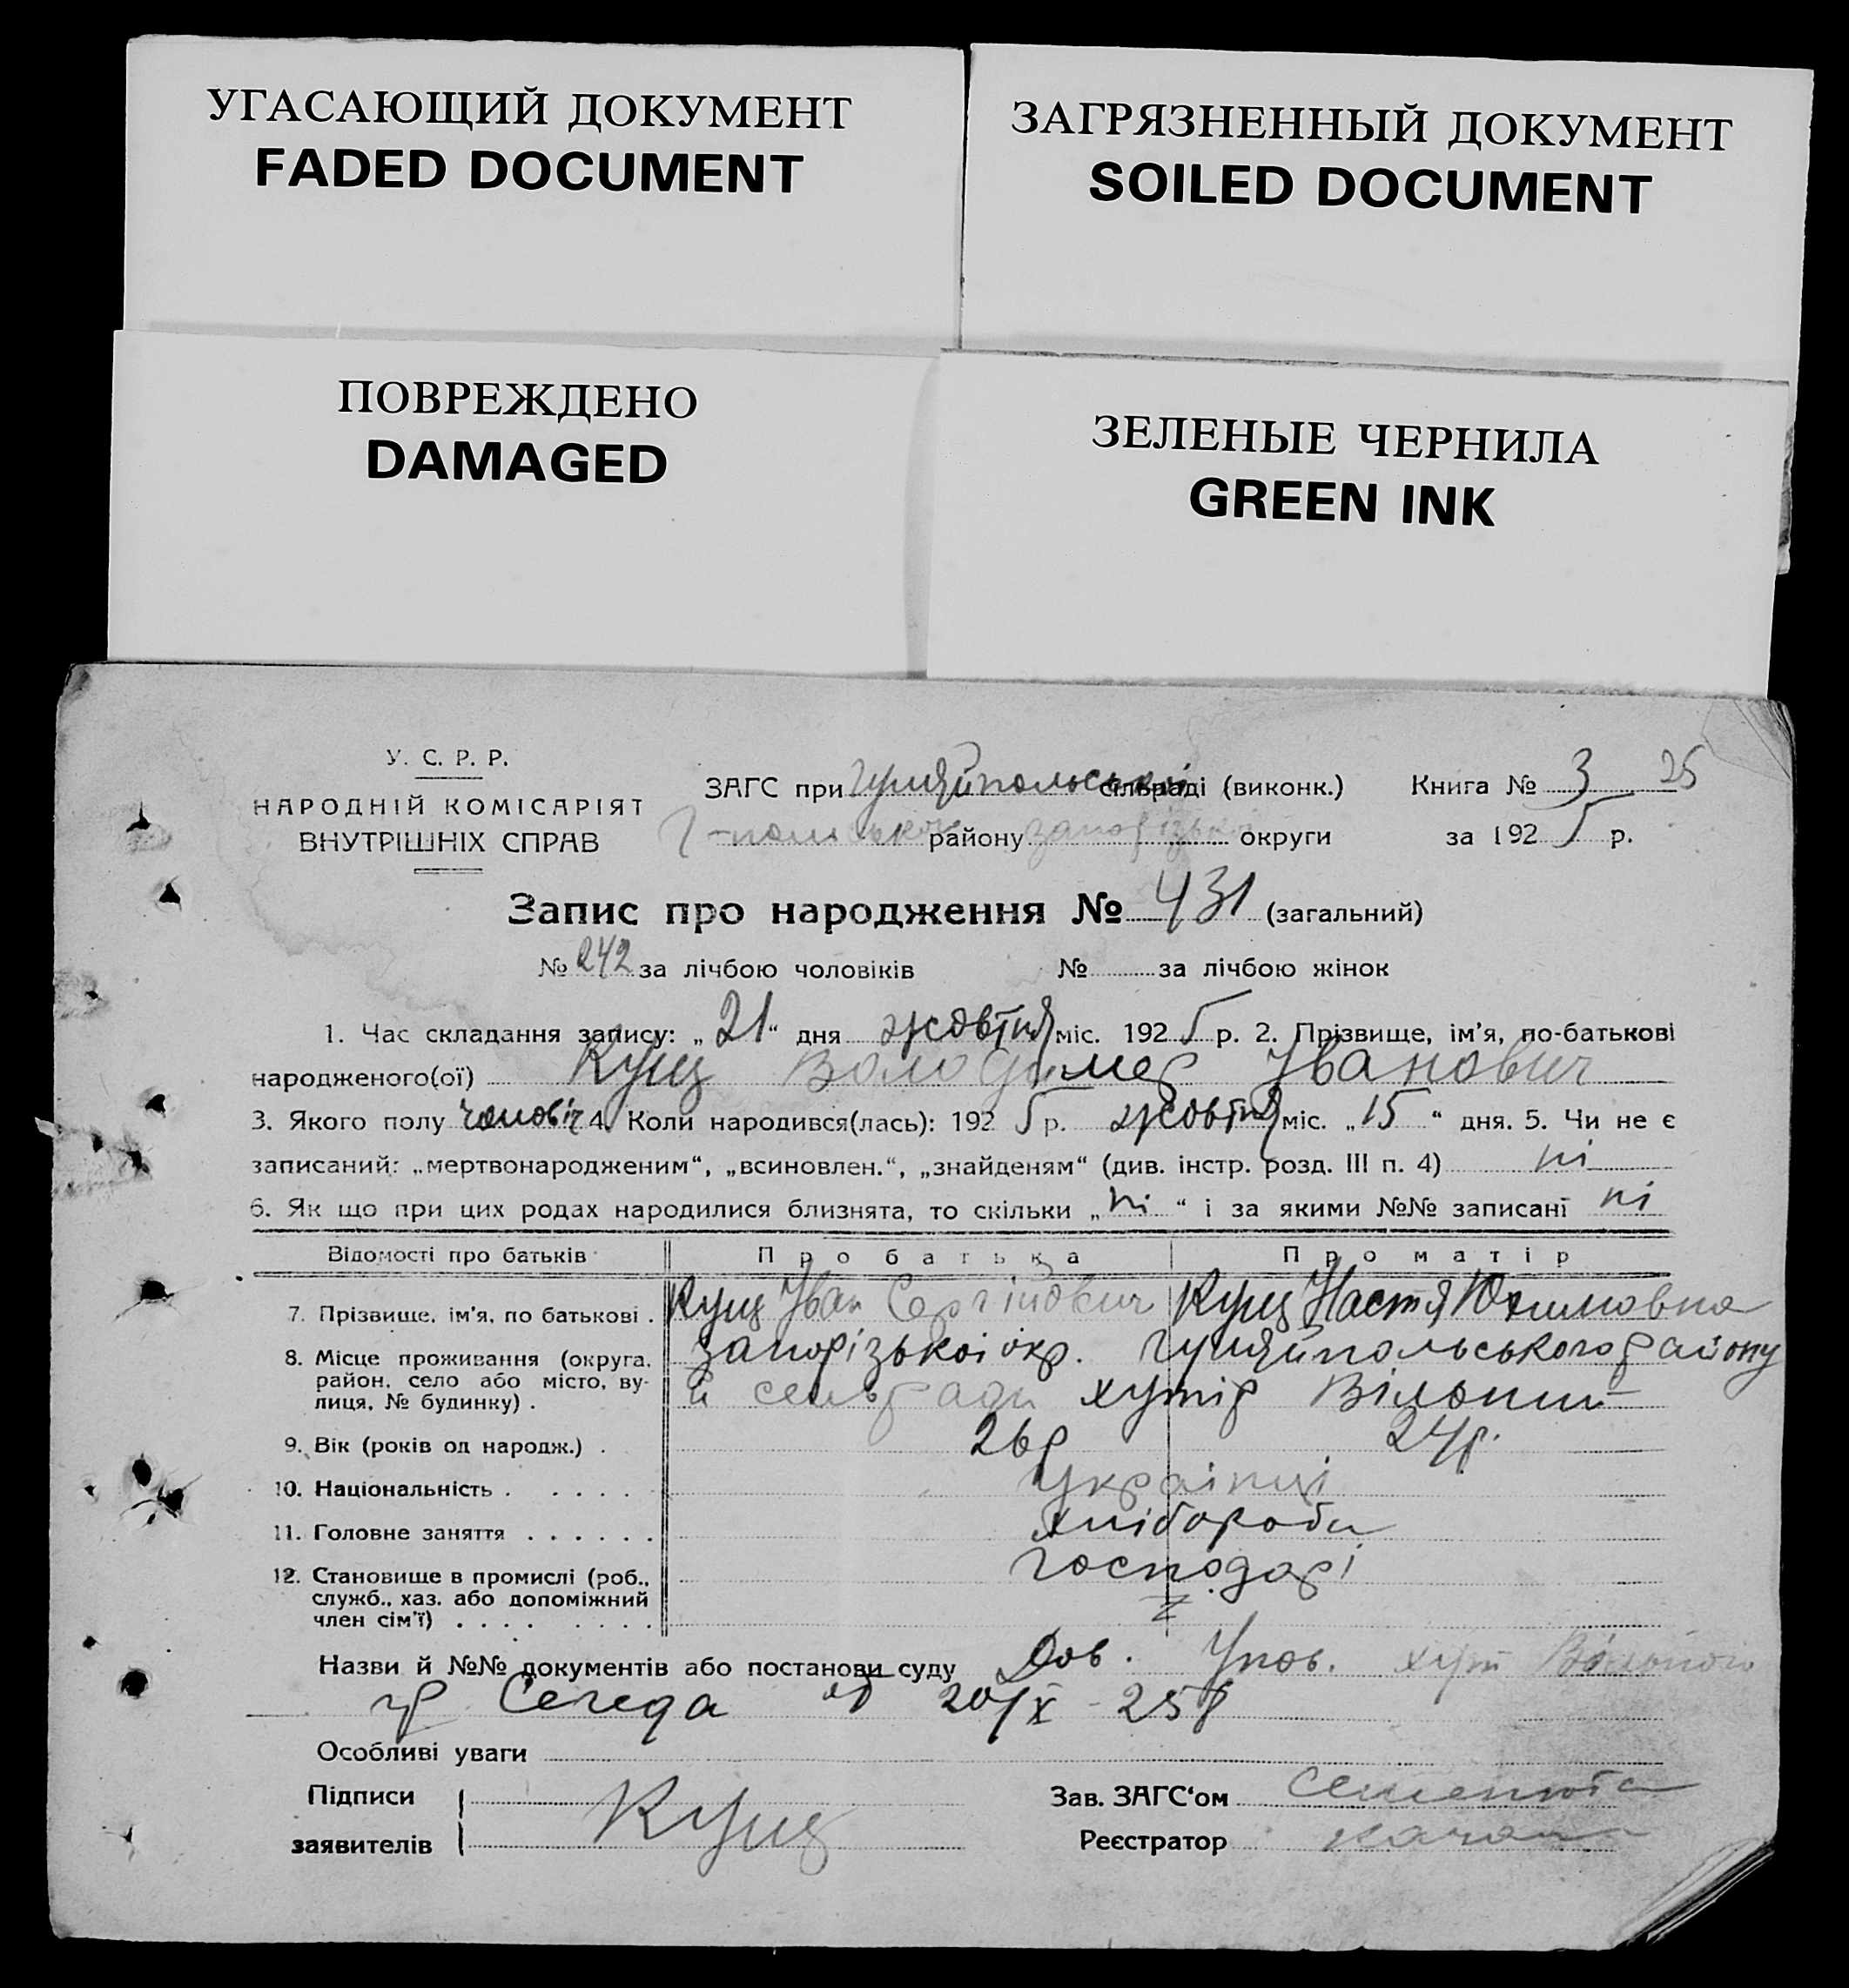 УГАСАЮЩИЙ ДОКУМЕНТ
FADED DOCUMENT
ЗАГРЯЗНЕННЫЙ ДОКУМЕНТ
SOILED DOCUMENT
ПОВРЕЖДЕНО
DAMAGED
ЗЕЛЕНЫЕ ЧЕРНИЛА
GREEN INK
У. С. Р. Р.
НАРОДНІЙ КОМІСАРІЯТ
ВНУТРІШНІХ СПРАВ
ЗАГС при Гуляйпольській сільраді (виконк.) Книга № 3 25
Г-польського району Запорізької округи за 1925 р.
Запис про народження № 431 (загальний)
№ 242 за лічбою чоловіків № за лічбою жінок
1. Час складання запису: „21“ дня жовтня міс. 1925 р. 2. Прізвище, ім’я, по-батькові
народженого(ої) Кущ Володимер Іванович
3. Якого полу чоловіч 4. Коли народився(лась): 1925 р. жовтня міс. „15“ дня. 5. Чи не є
записаний: „мертвонародженим“, „всиновлен.“, „знайденям“ (див. інстр. розд. III п. 4) ні
6. Як що при цих родах народилися близнята, то скільки „ні“ і за якими №№ записані ні
Відомості про батьків Про батька Про матір
7. Прізвище, ім’я, по батькові . Кущ Іван Сергійович Кущ Настя Юхимовна
8. Місце проживання (округа, район, село або місто, вулиця, № будинку) . Запорізької окр. Гуляйпольського району
сельради хутір Вільний
9. Вік (років од народж.) . 26р 24р.
10. Національність . . . . . . Українці
11. Головне заняття . . . . . . Хлібороби
12. Становище в промислі (роб., служб., хаз. або допоміжний член сім’ї) . . . . . . . . Господарі
Назви й №№ документів або постанови суду Дов. Упов. хут Вільного
гр Сегеда от 20/X-25р
Особливі уваги
Підписи заявителів Кущ
Зав. ЗАГС‘ом Семенюта
Реєстратор